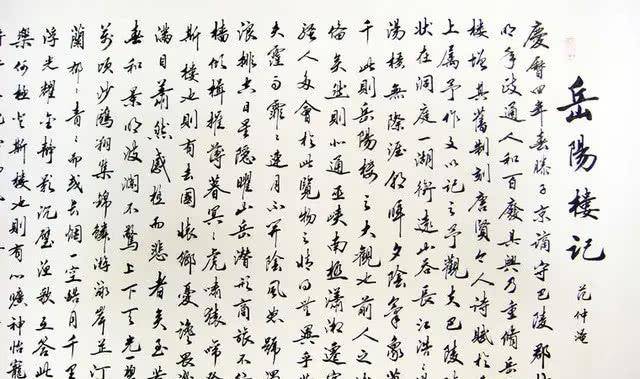 岳陽楼记
范仲淹
慶曆四年春滕子京謫守巴陵郡
明年政通人和百廢具興乃重脩岳
樓增其舊制刻唐賢今人詩賦於
上属予作文以記之予觀夫巴陵
状在洞庭一湖銜遠山吞長江浩浩
湯橫無際涯朝暉夕陰氣象萬
千此則岳陽樓之大觀也前人之
備矣然則北通巫峡南極瀟湘遷客
騷人多會於此覽物之情得無異乎
夫霪雨霏〻連月不開陰風怒號濁
浪排空日星隐曜山岳潛形商旅不行
樯傾楫摧薄暮冥〻虎嘯猿啼
斯樓也則有去國懷鄉憂讒畏
滿目蕭然感極而悲者矣至若
春和景明波瀾不驚上下天光一碧
萬頃沙鷗翔集錦鱗游泳岸芷汀
蘭郁〻青〻而或長烟一空皓月千里
浮光耀金靜影沉璧漁歌互答此
樂何極登斯樓也則有心曠神怡寵